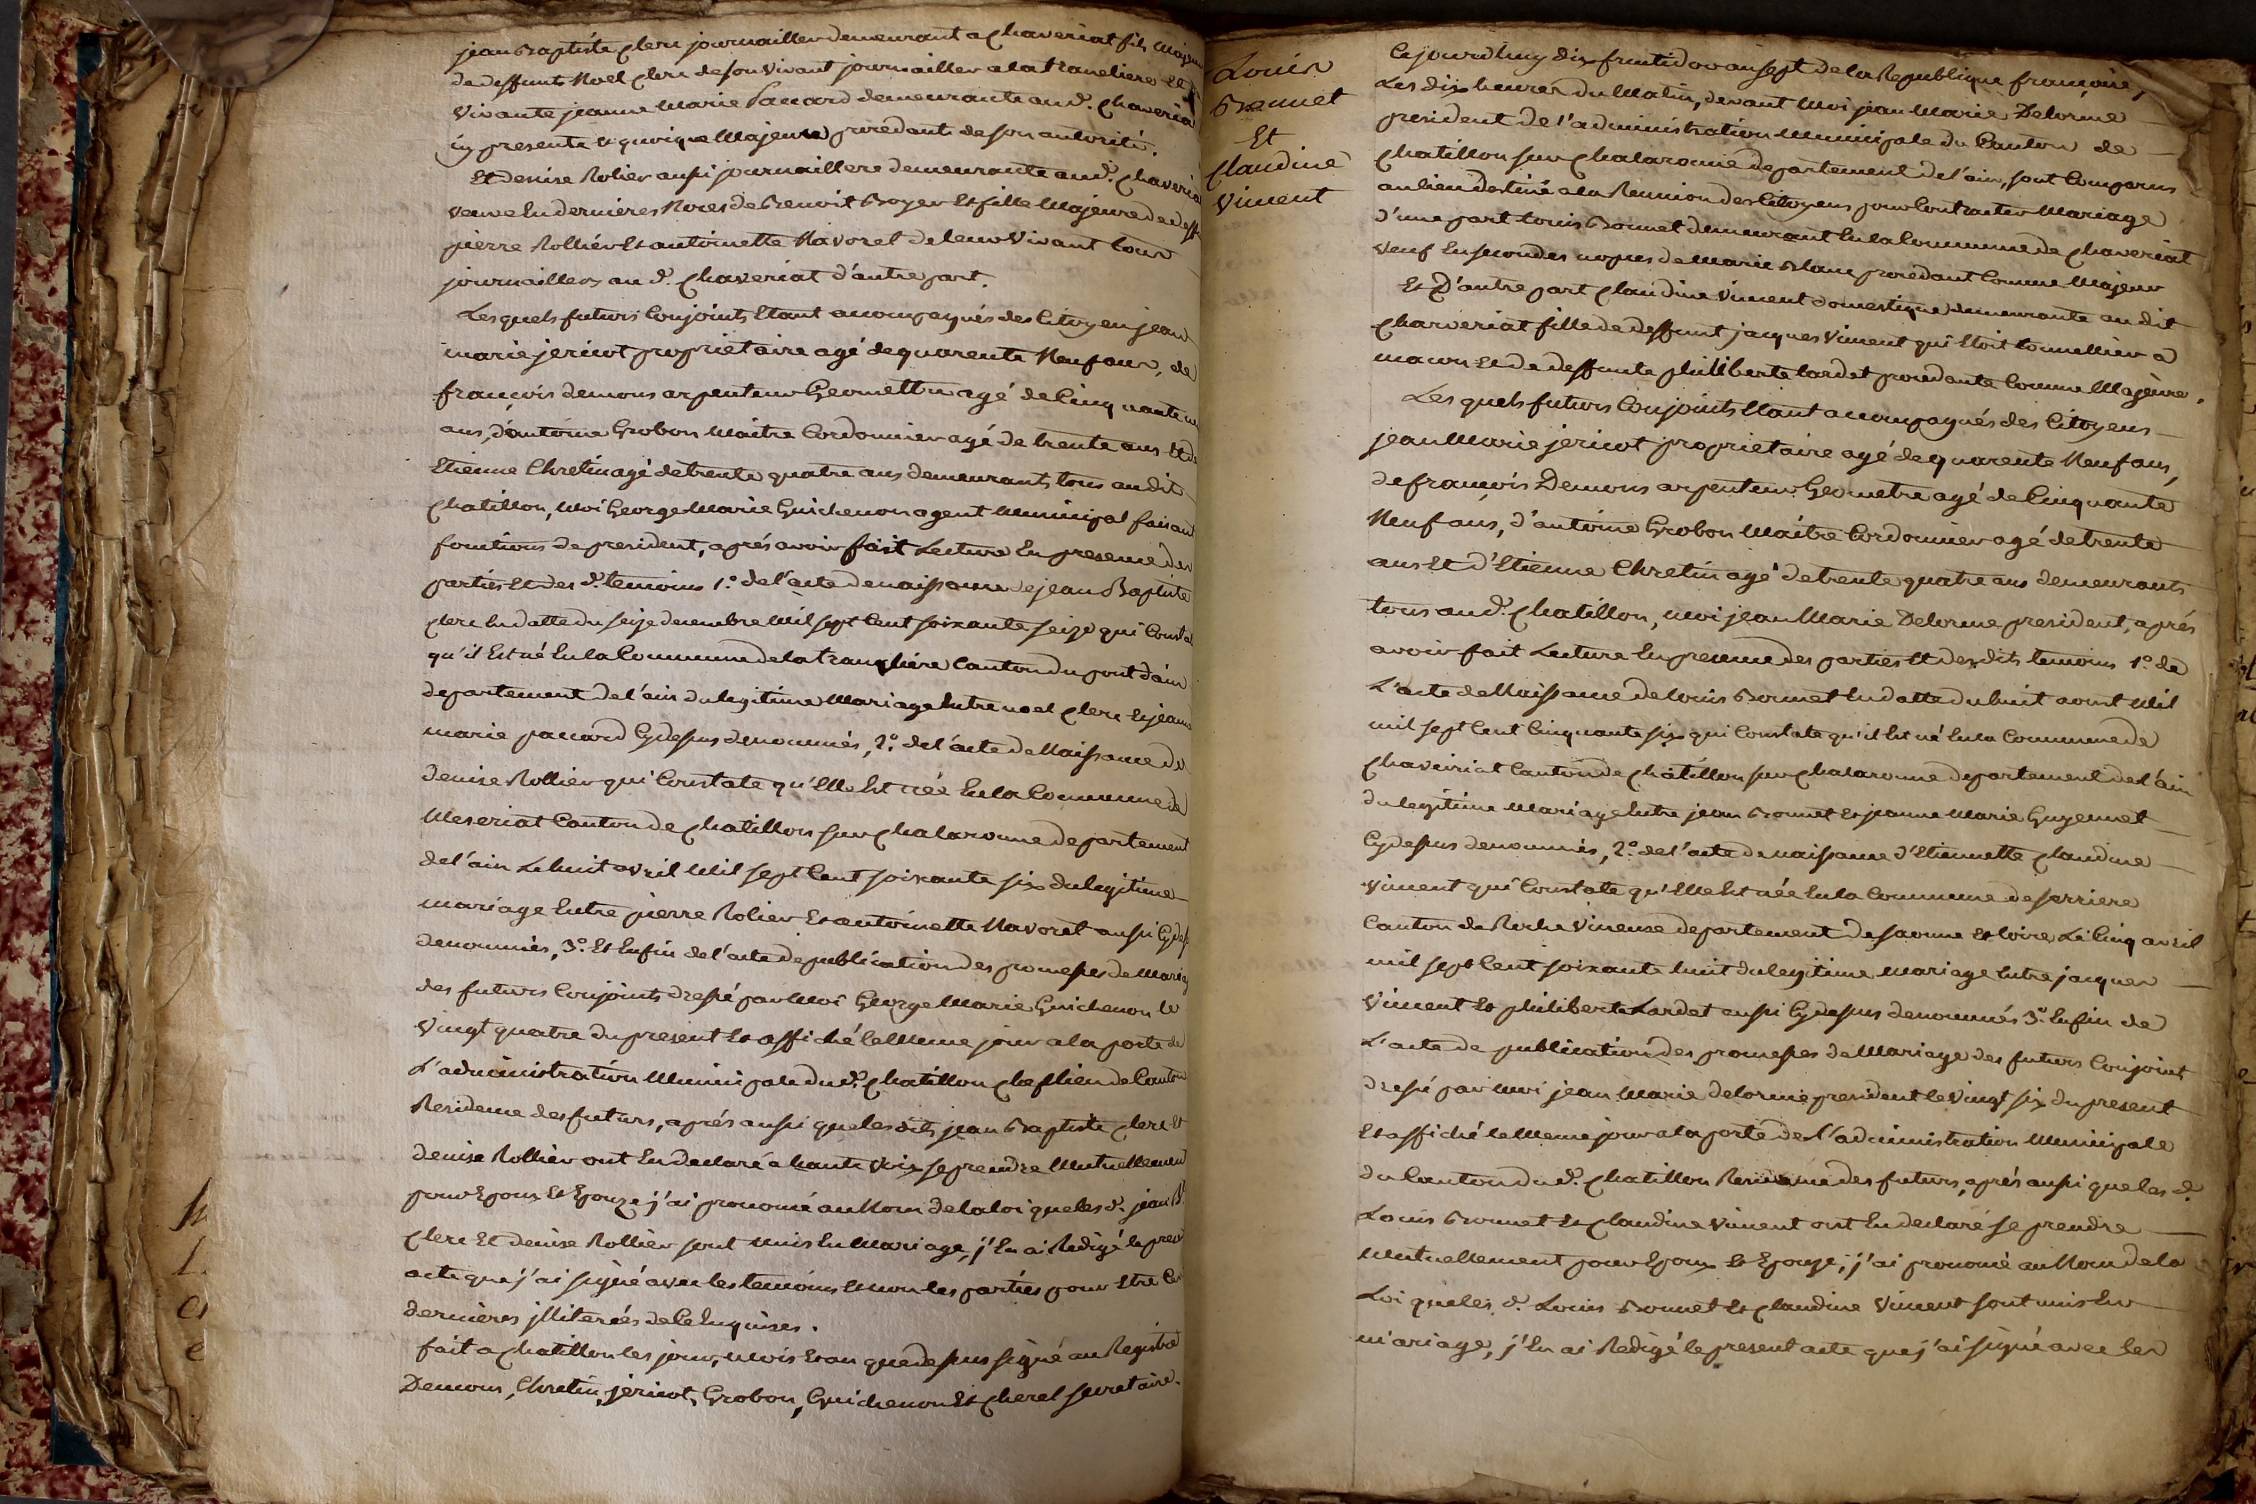 jean Baptiste Clerc journaillier demeurant a Chaveriat fils Majeur
de deffunts Noel Clerc de son vivant journaillier a la tranclière Et de
vivante jeanne Marie Paccard demeurante au d. Chaveria
icy presente et quoique Majeure procedant de son autorité.
Et denise Rolier aussi journailliere demeurante au d. Chaveriat
veuve En dernieres Noces de Benoit Boyer Et fille Majeure de deff
pierre Rollier Et antoinette Mavoret de leur vivant tous
journailliers au d. Chaveriat d'autre part.
Lesquels futurs Conjoints Etant acompagnés des Citoyen jean
marie jericot proprietaire agé de quarente Neuf ans, de
françois demons arpenteur Geomettre agé de Cinquante neu
ans, d'antoine Grobon Maitre Cordonnier agé de trente ans Et de
Etienne Chretin agé de trente quatre ans demeurants tous audit
Chatillon, Moi George Marie Guichenon agent Municipal faisant
fonctions de president, aprés avoir fait Lecture En presence des
parties Et des d. temoins 1.º de l'acte de naissance de jean Baptiste
Clerc En datte du seize decembre Mil sept Cent soixante seize qui Constat
qu'il Est né En la Commune de la tranclière Canton du pont dain
departement de l'ain du legitime Mariage Entre noel Clerc Et jeanne
marie paccard Cy dessus denommés, 2.º de l'acte de Naissance de
denise Rollier qui Constate qu'Elle Est née En la Commune de
Meseriat Canton de Chatillon sur Chalaronne departement
de l'ain Le huit avril Mil sept Cent soixante six du legitime
mariage Entre pierre Rolier Et antoinette Mavoret aussi Cy dess
denommés, 3.º Et Enfin de l'acte de publication des promesses de Mariag
des futurs Conjoints dressé par Moi George Marie Guichenon le
vingt quatre du present Et affiché le Meme jour a la porte de
L'administration Municipale du d. Chatillon Cheflieu de Canton
Residence des futurs, aprés aussi que les dits jean Baptiste Clerc Et
denise Rollier ont En declaré a haute voix se prendre Mutuellement
pour Epoux Et Epouze j'ai prononcé au Nom de la loi que les d. jean Bte
Clerc Et denise Rollier sont unis En Mariage, j'En ai Redigé le prest
acte que j'ai signé avec les temoins Et non les parties pour Etre Ces
dernieres jlliterées de Ce Enquises.
fait a Chatillon les jour, Mois Et an que dessus signé au Registre
Demons, Chretin, jericot, Grobon, Guichenon Et Cherel secretaire.
Louis
Bonnet
Et
Claudine
Vincent
Cejourdhuy dix fructidor an sept de la Republique françoise,
Les dix heures du Matin, devant Moi jean Marie Delorme
president de l'administration Municipale du Canton de
Chatillon sur Chalaronne departement de l'ain, sont Comparus
au lieu destiné a la Reunion des Citoyens pour Contracter Mariage
d'une part Louis Bonnet demeurant En la Commune de Chaveriat
veuf En secondes nopces de Marie Blanc procedant Comme Majeur
Et D'autre part Claudine Vincent domestique demeurante au dit
Charveriat fille de deffunt jacques Vincent qui Etoit tonnellier a
macon Et de deffunte philliberte Lardet procedante Comme Majeure.
Lesquels futurs Conjoints Etant acompagnés des Citoyens
jean Marie jericot proprietaire agé de quarente Neuf ans,
de françois Demons arpenteur Geometre agé de Cinquante
Neuf ans, d'antoine Grobon Maitre Cordonnier agé de trente
ans Et d'Etienne Chretin agé de trente quatre ans demeurants
tous au d. Chatillon, Moi jean Marie Delorme president, aprés
avoir fait Lecture En presence des parties Et des dits temoins 1.º de
L'acte de Naissance de Louis Bonnet En datte du huit aout Mil
mil sept Cent Cinquante six qui Constate qu'il Est né En la Commune de
Chaveiriat Canton de Châtillon sur Chalaronne departement de l'ain
du legitime Mariage Entre jean Bonnet Et jeanne Marie Guyennet
Cy dessus denommés, 2.º de l'acte de naissance d'Etiennette Claudine
Vincent qui Constate qu'Elle Est née En la Commune de serriere
Canton de Roche Vineuse departement de saonne Et Loire Le Cinq avril
mil sept Cent soixante huit du legitime Mariage Entre jacques
Vincent Et philiberte Lardet aussi Cy dessus denommés 3.º Enfin de
L'acte de publication des promesses de Mariage des futurs Conjoint
dressé par Moi jean Marie delorme president le vingt six du present
Et affiché le Meme jour a la porte de l'administration Municipale
du Canton du d. Chatillon Residence des futurs, aprés aussi que les d.
Louis Bonnet Et Claudine Vincent ont En declaré se prendre
Mutuellement pour Epoux Et Epouze, j'ai prononcé au Nom de la
Loi que les d. Louis Bonnet Et Claudine Vincent sont unis En
mariage, j'En ai Redigé le present acte que j'ai signé avec les